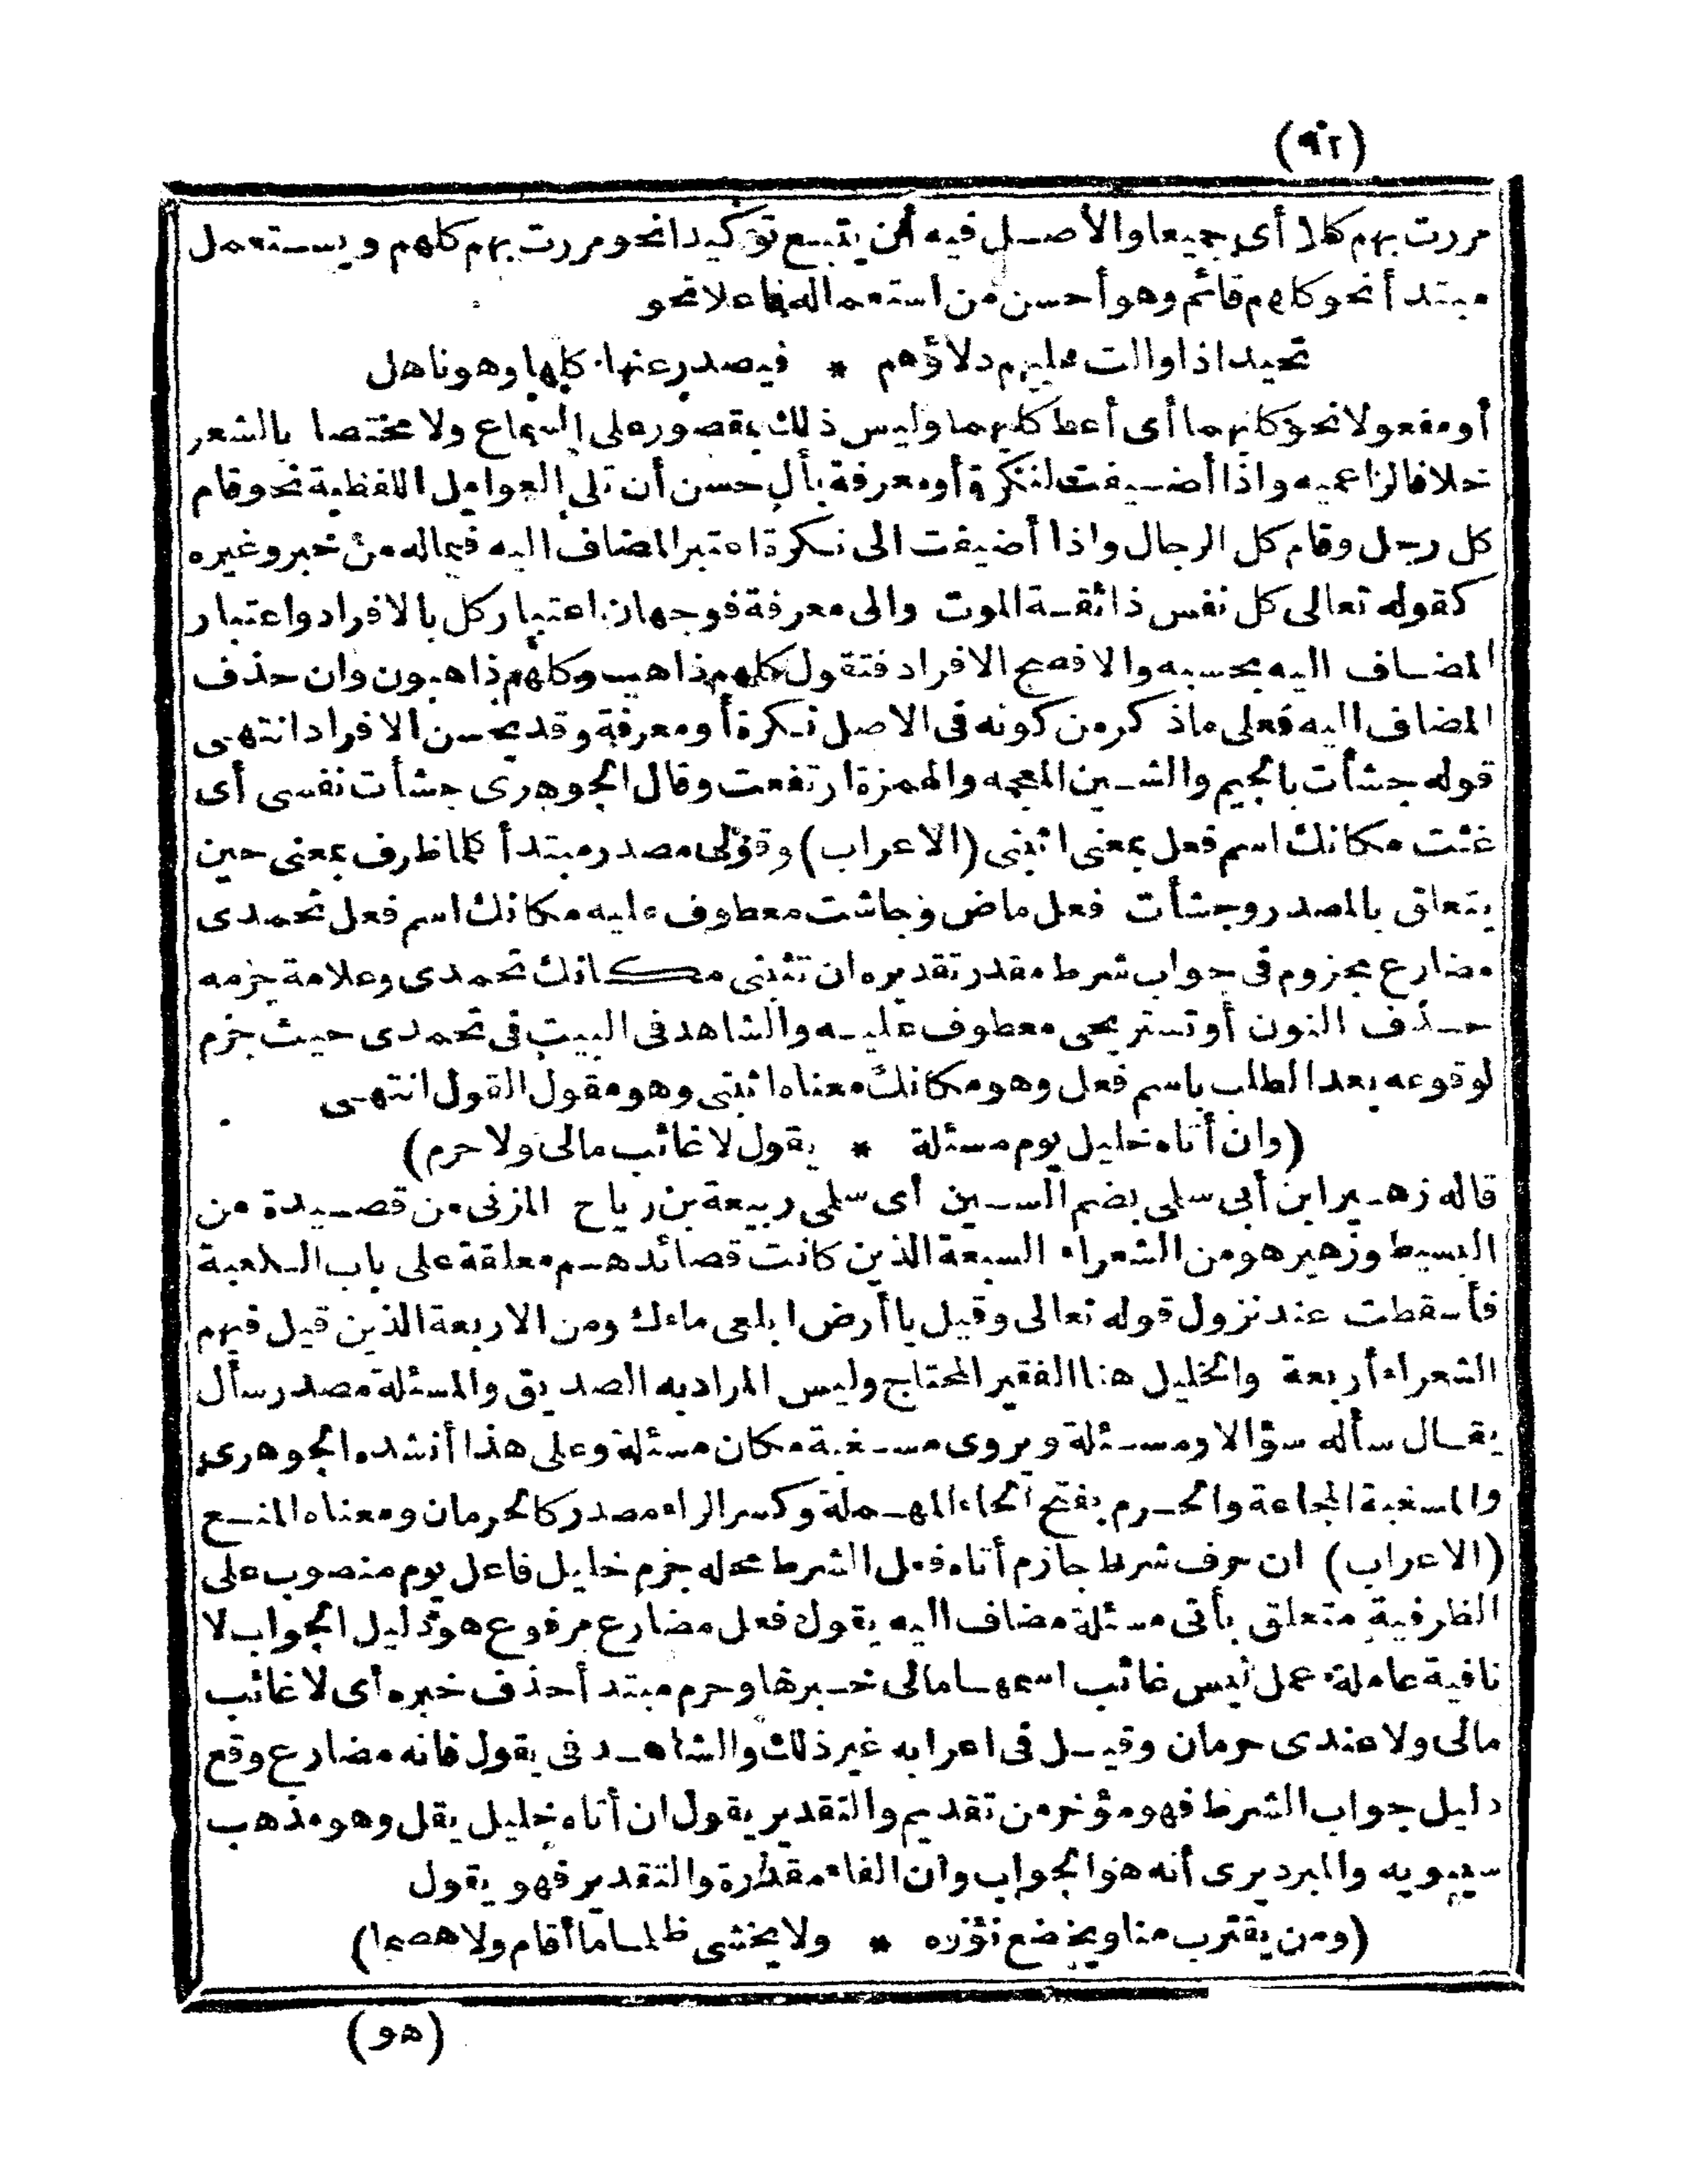 (٩٢)
مررت بهم كلا أى جميعا والأصل فيه أن يتبع توكيدا نحو مررت بهم كلهم ويستعمل
مبتدأ نحو كلهم قائم وهو أحسن من استعماله فاعلا نحو
تميد اذا والت عليهم دلاؤهم * فيصدر عنها كلها وهو ناهل
أو مفعولا نحو كليهما أى أعط كليهما وليس ذلك بمقصور على السماع ولا مختصا بالشعر
خلافا لزاعميه واذا أضيفت لنكرة أو معرفة بأل حسن أن تلى العوامل اللفظية نحو قام
كل رجل وقام كل الرجال واذا أضيفت الى نكرة اعتبر المضاف اليه فيماله من خبر وغيره
كقوله تعالى كل نفس ذائقة الموت والى معرفة فوجهان اعتبار كل بالافراد واعتبار
المضاف اليه بحسبه والافصح الافراد فتقول كلهم ذاهب وكلهم ذاهبون وان حذف
المضاف اليه فعلى ماذكر من كونه فى الاصل نكرة أو معرفة وقد يحسن الافراد انتهى
قوله جشأت بالجيم والشين المعجمه والهمزة ارتفعت وقال الجوهرى جشأت نفسى أى
غثت مكانك اسم فعل بمعنى اثبتى (الاعراب) وقولى مصدر مبتدأ كلما ظرف بمعنى حين
يتعلق بالمصدر وجشأت فعل ماض وجاشت معطوف عليه مكانك اسم فعل تحمدى
مضارع مجزوم فى جواب شرط مقدر تقديره ان تثبتى مكانك تحمدى وعلامة جزمه
حذف النون أو تستريحى معطوف عليه والشاهد فى البيت فى تحمدى حيث جزم
لوقوعه بعد الطلب باسم فعل وهو مكانك معناه اثبتى وهو مقول القول انتهى
(وان أتاه خليل يوم مسئلة * يقول لا غائب مالى ولا حرم)
قاله زهير ابن أبى سلمى بضم السين أى سلمى ربيعة بن رياح المزنى من قصيدة من
البسيط وزهير هو من الشعراء السبعة الذين كانت قصائدهم معلقة على باب الكعبة
فأسقطت عند نزول قوله تعالى وقيل ياأرض ابلعى ماءك ومن الاربعة الذين قيل فيهم
الشعراء أربعة والخليل هنا الفقير المحتاج وليس المراد به الصديق والمسئلة مصدر سأل
يقال سأله سؤالا ومسئلة ويروى مسغبة مكان مسئلة وعلى هذا أنشده الجوهرى
والمسغبة المجاعة والحرم بفتح الحاء المهملة وكسر الراء مصدر كالحرمان ومعناه المنع
(الاعراب) ان حرف شرط جازم أتاه فعل الشرط محله جزم خليل فاعل يوم منصوب على
الظرفية متعلق بأتى مسئلة مضاف اليه يقول فعل مضارع مرفوع هو دليل الجواب لا
نافية عاملة عمل ليس غائب اسمها مالى خبرها وحرم مبتدأ حذف خبره أى لا غائب
مالى ولا عندى حرمان وقيل فى اعرابه غير ذلك والشاهد فى يقول فانه مضارع وقع
دليل جواب الشرط فهو مؤخر من تقديم والتقدير يقول ان أتاه خليل يقل وهو مذهب
سيبويه والمبرد يرى أنه هو الجواب وان الفاء مقدرة والتقدير فهو يقول
(ومن يقترب منا ويخضع نؤوه * ولا يخشى ظلما ما أقام ولا هضما)
(هو)